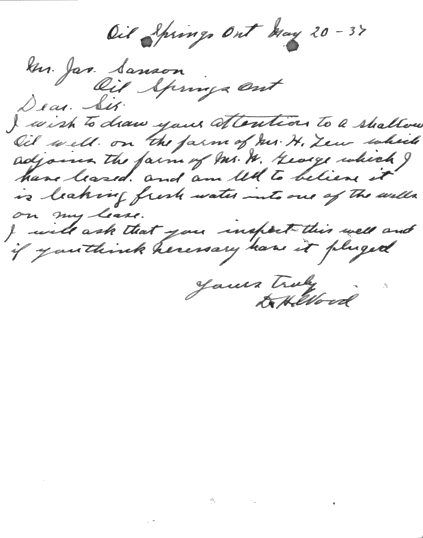 Oil Springs Ont May 20-37
Mr. Jas. Sanson
Oil Springs Ont
Dear. Sir
I wish to draw your attention to a shallow
Oil well. on the farm of Mr. H. which
adjoins the farm of Mr. W. George which I
have leased. and am led to believe it
is leaking fresh water into one of the wells
on my lease.
I will ask that you inspect this well and
if you think necessary have it pluged
Yours truly
Wood